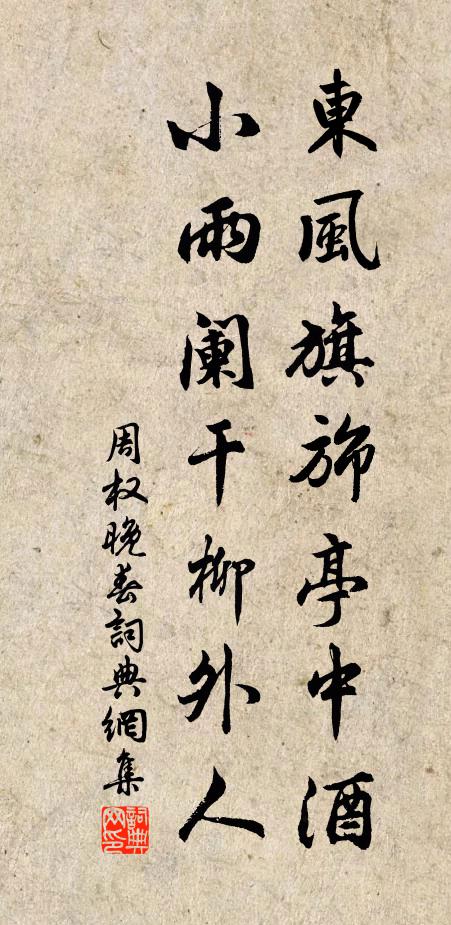 東風旗旆亭中酒
小雨阑干柳外人
周权晚春詞典網集
詞典网印